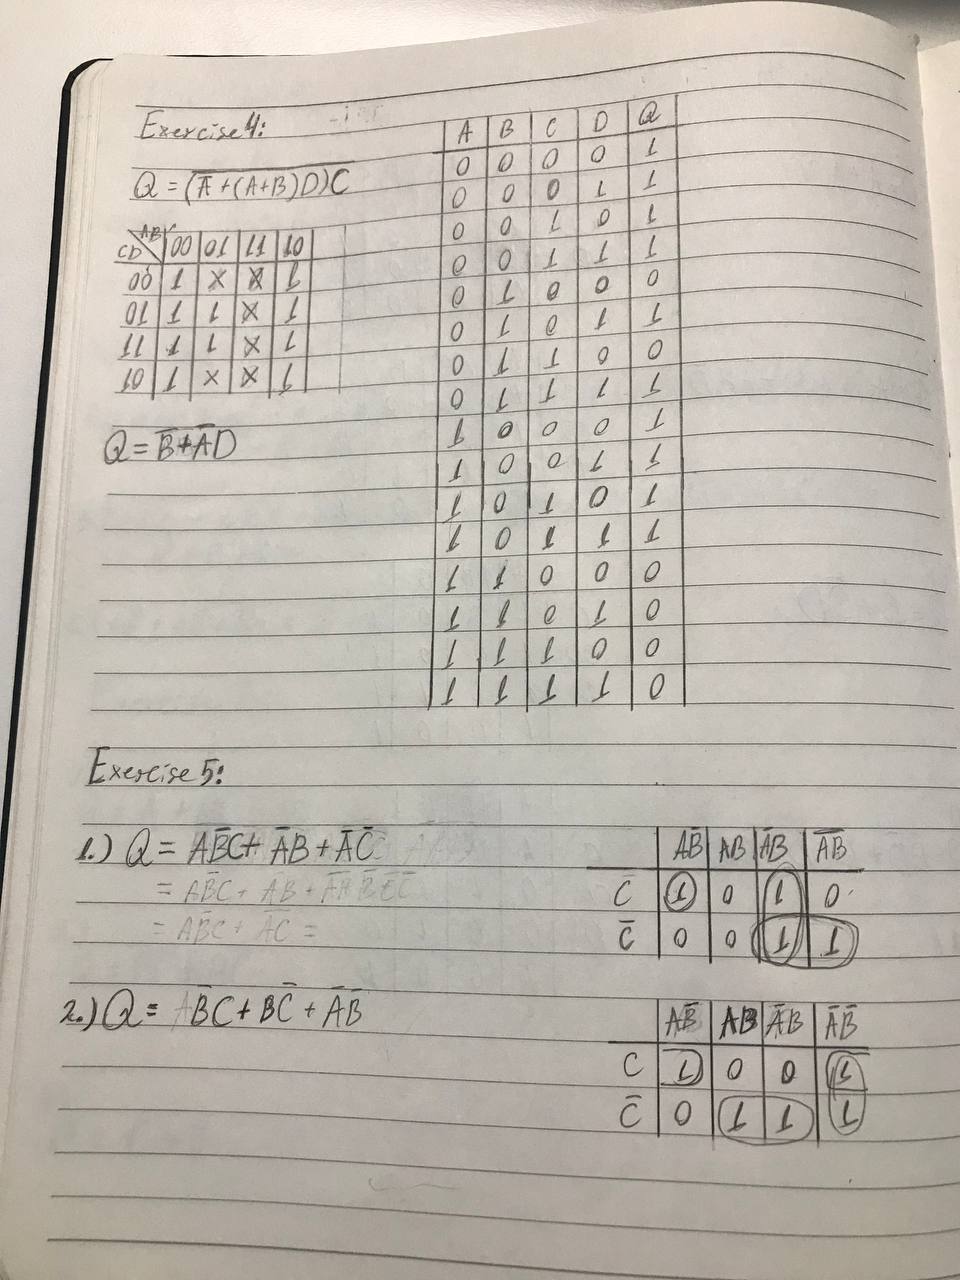 Exercise 4:
Q = (A̅+(A+B)D)C
AB
CD 00 01 11 10
00 1 x x 1
01 1 1 x 1
11 1 1 x 1
10 1 x x 1
Q = B̅+A̅D
A B C D Q
0 0 0 0 1
0 0 0 1 1
0 0 1 0 1
0 0 1 1 1
0 1 0 0 0
0 1 0 1 1
0 1 1 0 0
0 1 1 1 1
1 0 0 0 1
1 0 0 1 1
1 0 1 0 1
1 0 1 1 1
1 1 0 0 0
1 1 0 1 0
1 1 1 0 0
1 1 1 1 0
Exercise 5:
1.) Q = AB̅C+ A̅B + A̅C̅
= AB̅C + A̅B +
= AB̅C + A̅C̅ =
AB̅ AB A̅B A̅B̅
C 1 0 1 0
C̅ 0 0 1 1
2.) Q = B̅C + BC̅ + A̅B̅
AB̅ AB A̅B A̅B̅
C 1 0 0 1
C̅ 0 1 1 1